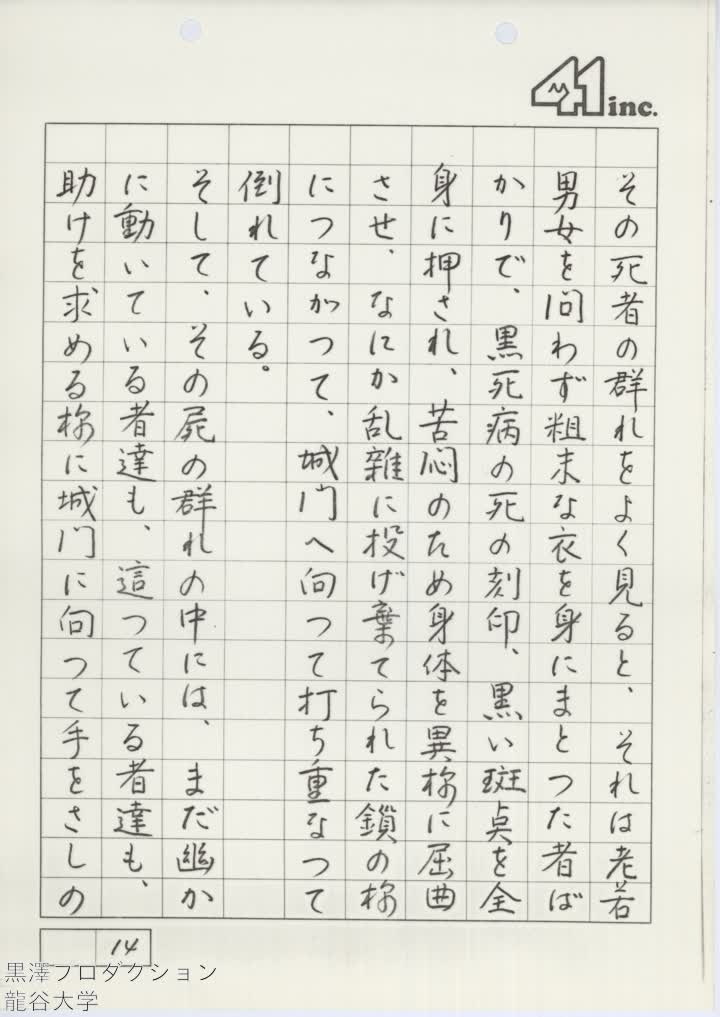 41 inc.
その死者の群れをよく見ると、それは老若
男女を問わず粗末な衣を身にまとつた者ば
かりで、黒死病の死の刻印、黒い斑点を全
身に押され、苦悶のため身体を異様に屈曲
させ、なにか乱雑に投げ棄てられた鎖の様
につながつて、城門へ向つて打ち重なつて
倒れている。
そして、その屍の群れの中には、まだ幽か
に動いている者達も、這つている者達も、
助けを求める様に城門に向つて手をさしの
14
黒澤プロダクション
龍谷大学